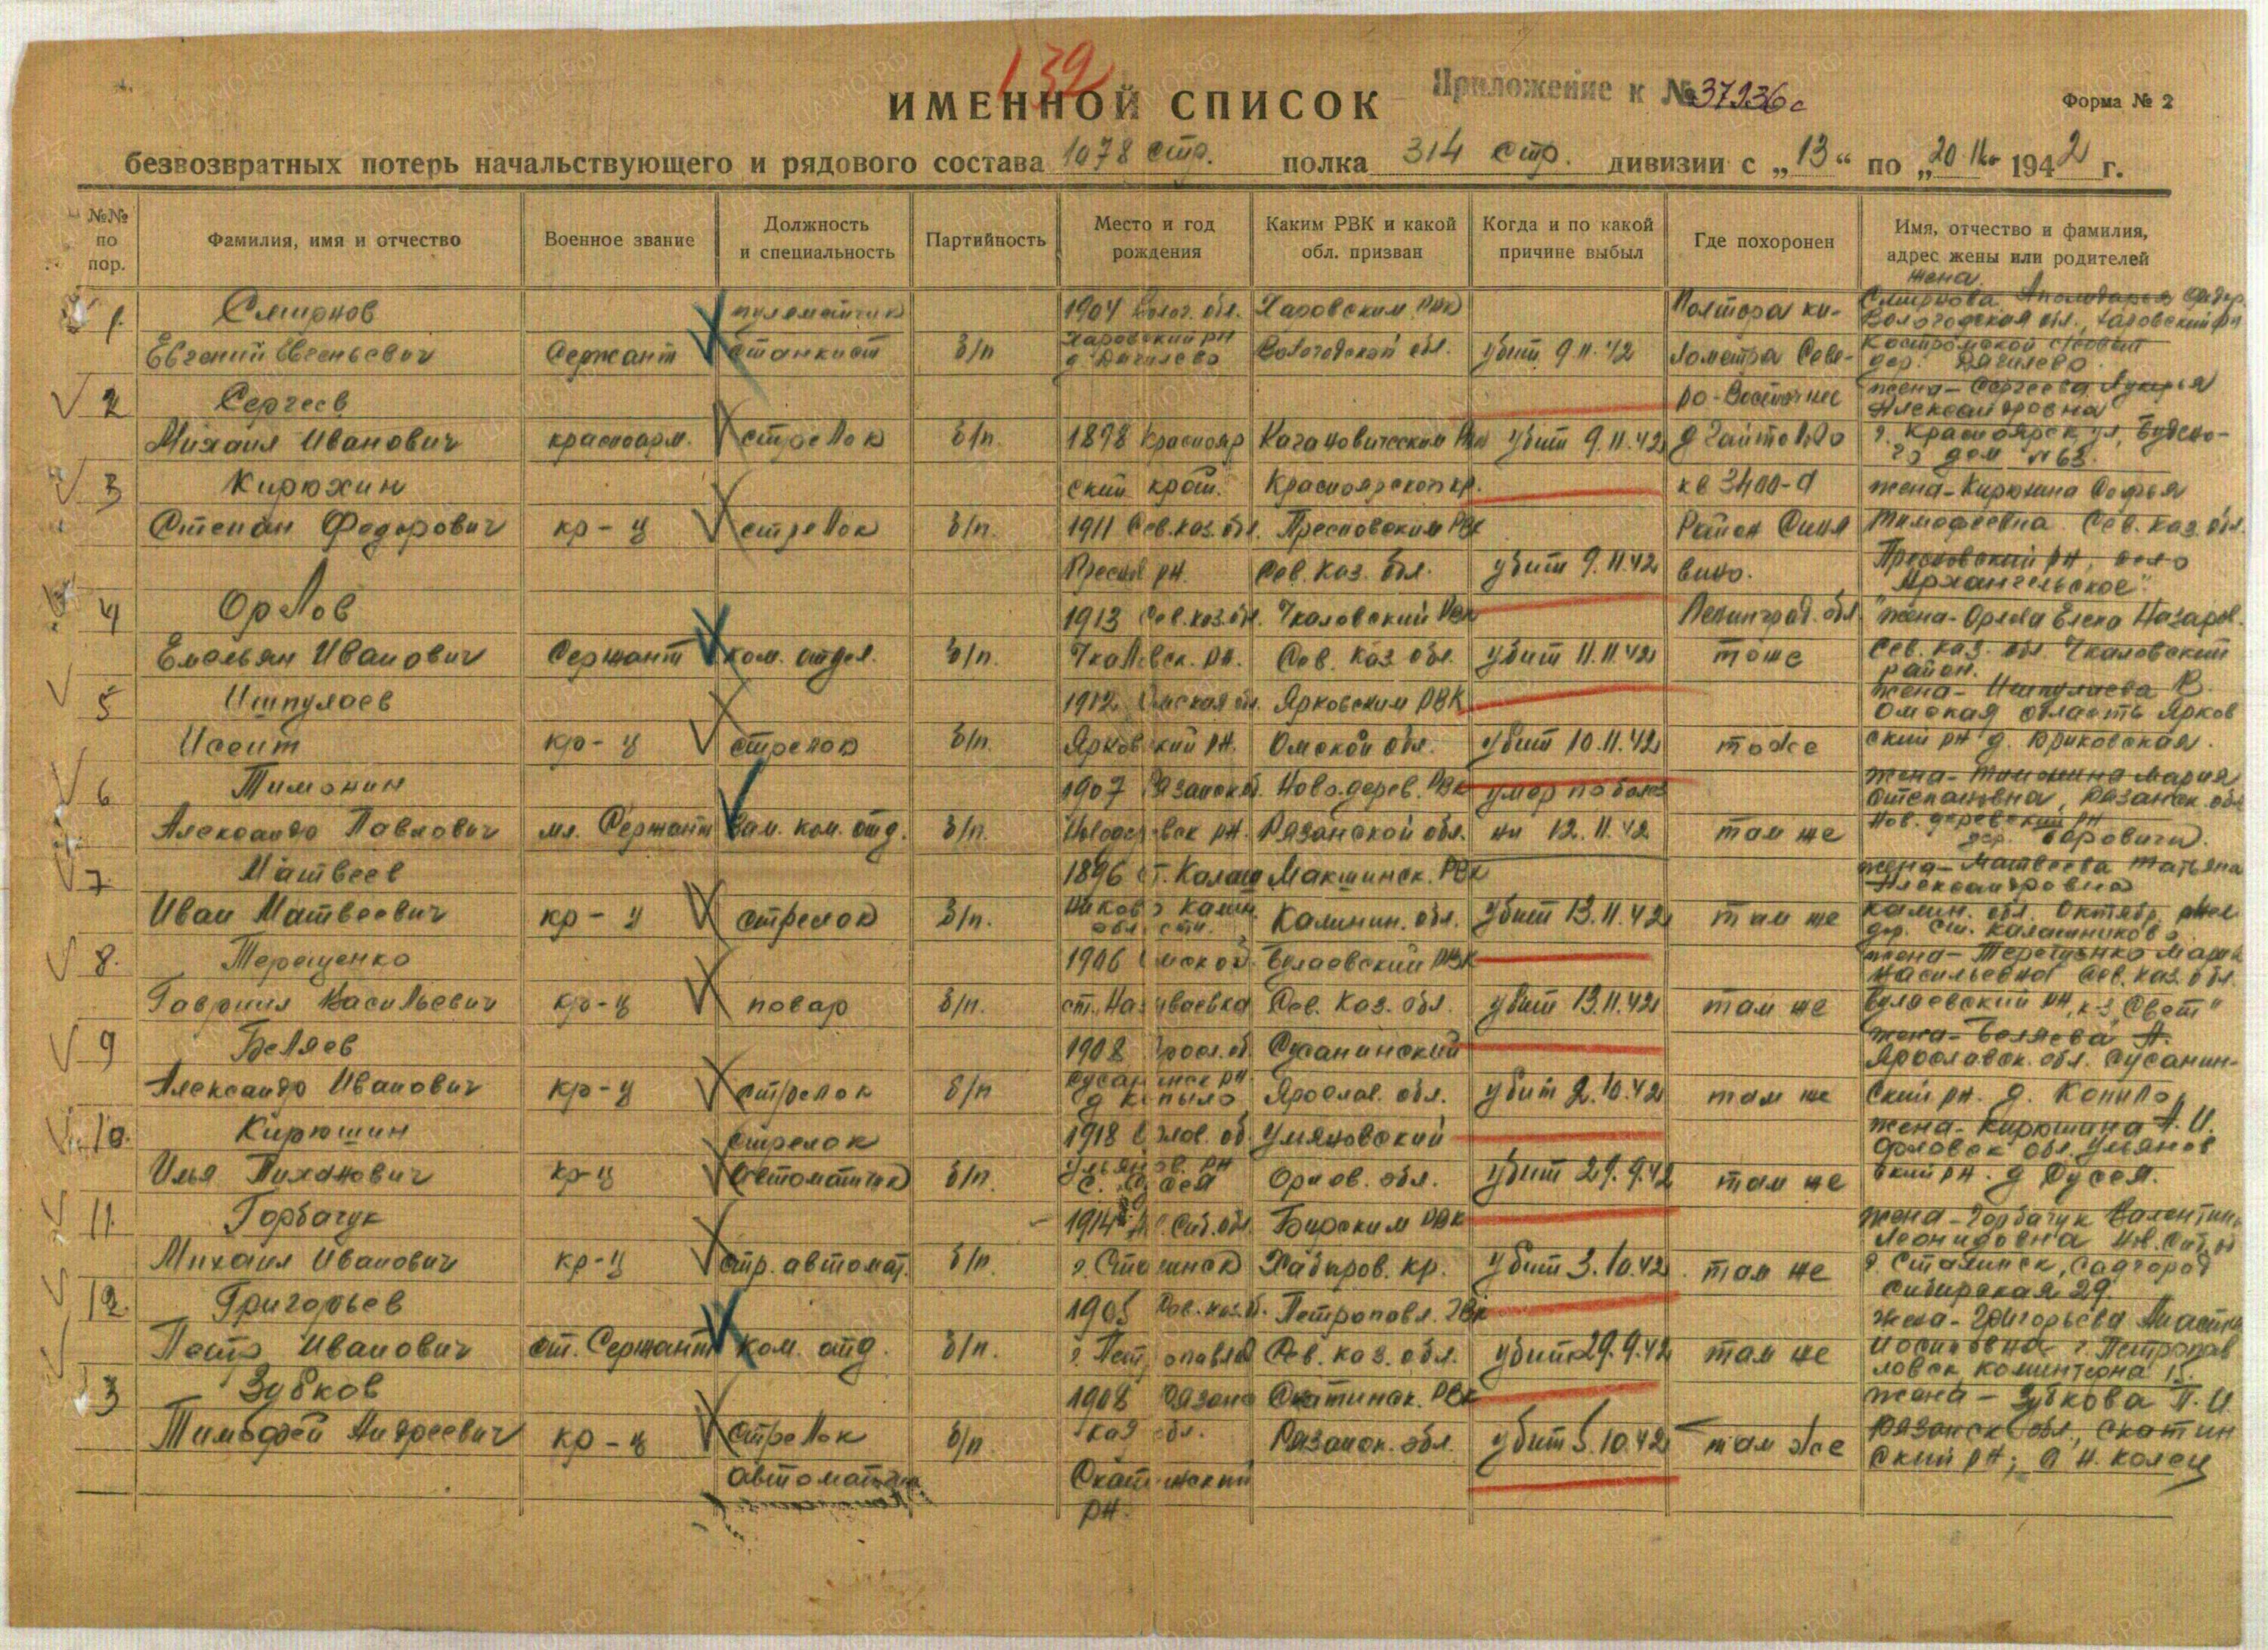 132
ИМЕННОЙ СПИСОК
Приложение к № 37936с
Форма № 2
безвозвратных потерь начальствующего и рядового состава 1078 стр. полка 314 стр. дивизии с „13“ по „20 1942 г.
№№ по пор. Фамилия, имя и отчество Военное звание Должность и специальность Партийность Место и год рождения Каким РВК и какой обл. призван Когда и по какой причине выбыл Где похоронен Имя, отчество и фамилия, адрес жены или родителей
жена
1. Смирнов пулеметчик 1904 Волог. обл. Харовским РВК Полтора ки- Смирнова
Вологодская обл., Харовский рн
Евгений Евгеньевич Сержант станкист б/п Харовский рн Вологодской обл. убит 9.11.42 лометра Севе-
дер.
2 Сергеев ро-Восточнее жена - Сергеева
Александровна
Михаил Иванович красноарм. стрелок б/п. 1898 Краснояр Кагановическим РВК убит 9.11.42 г. Красноярск ул. Будено-
го дом №63.
3 Кирюхин ский край. Красноярского кр. кв 3400-д жена - Кирюхина Софья
Степан Федорович кр-ц стрелок б/п. 1911 Сев.каз.обл. Пресновским РВК Район Синя Тимофеевна Сев. каз. обл.
Преснов рн. Сев. Каз. обл. убит 9.11.42 вино. Пресновский рн, село
Архангельское"
4 Орлов 1913 Сев.каз.обл. Чкаловский РВК Ленинград. обл жена - Орлова Елена Назаров.
Емельян Иванович Сержант ком. отдел. б/п. Чкаловск. рн. Сев. Каз обл. убит 11.11.42 тоже Сев. каз. обл Чкаловский
район.
5 Ишпулаев 1912 Омская обл. Ярковским РВК жена - Ишпулаева
Омская область Ярков
кр-ц стрелок б/п. Ярковский рн. Омской обл. убит 10.11.42 тоже ский рн д. Юрковская.
6 Тимонин 1907 Рязанской. Новодерев. РВК умер по болез жена - Тимонина Мария
Степановна, Рязанск. обл
Александр Павлович мл. Сержант зам. ком. отд. б/п. рн. Рязанской обл. ни 12.11.42 там же Нов. деревский рн
дер.
7. Матвеев 1896 ст. Калаш Макшинск. РВК жена - Матвеева Татьяна
Александровна
Иван Матвеевич кр-ц стрелок б/п. Калинин. обл. убит 13.11.42 там же калин. обл. Октябр.
дер. ст. Калашниково
8. Терещенко 1906 Омской Булаевский РВК жена - Терещенко Мария
Васильевна Сев. каз. обл.
Гавриил Васильевич кр-ц повар б/п. ст. Называевка Сев. Каз. обл. убит 13.11.42 там же Булаевский рн, к-з „Свет"
9 Беляев 1908 Яросл. об. Сусанинский жена - Беляева А.
Ярославск. обл. Сусанин-
Александр Иванович кр-ц стрелок б/п Сусанинск рн. д Копыло Ярослав. обл. убит 2.10.42 там же ский рн. д. Копыло
10. Кирюшин стрелок 1918 Орлов. об Ульяновский жена - Кирюшина А. И.
Орловск обл. Ульянов
Илья кр-ц автоматчик б/п. Ульянов. рн Орлов. обл. убит 29.9.42 там же ский рн. д
11. Горбачук 1914 Сиб. обл. Бирским РВК жена - Горбачук Валентина
Леонидовна
Михаил Иванович кр-ц стр. автомат. б/п. г. Сталинск Хабаров. кр. убит 3.10.42 там же г. Сталинск, Садгород
Сибирская 29.
12. Григорьев 1905 Сев. каз. об. Петропавл. РВК жена - Григорьева
Петр Иванович ст. Сержант ком. отд. б/п. г. Петропавлов Сев. каз. обл. убит 29.9.42 там же г. Петропав
ловск коминтерна
13 Зубков 1908 Рязанс Скопинск. РВК жена - Зубкова П. И.
Тимофей Андреевич кр-ц стрелок б/п. кая обл. Рязанск. обл. убит 5.10.42 там же Рязанск обл., Скопин
автоматчик Скопинский ский рн;
рн.